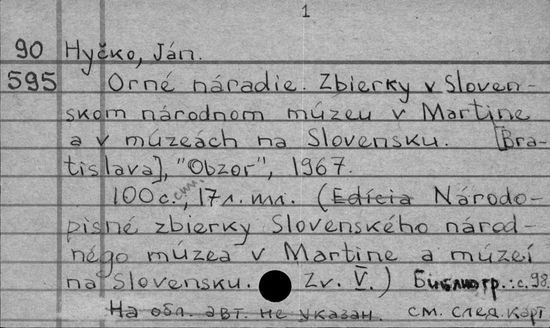 1
90 Hyčko, Ján.
595 Orné náradie. Zbierky v Sloven-
skom národnom múzeu v Martine
a v múzeách na Slovensku. [Bra-
tislava], "Obzor", 1967.
100 с., 17 л. илл. (Edícia Národo-
pisné zbierky Slovenského národ-
ného múzea v Martine a múzeí
na Slovensku. Zv. V.) Библиогр.: с. 98.
На обл. авт. не указан. см. след. карт